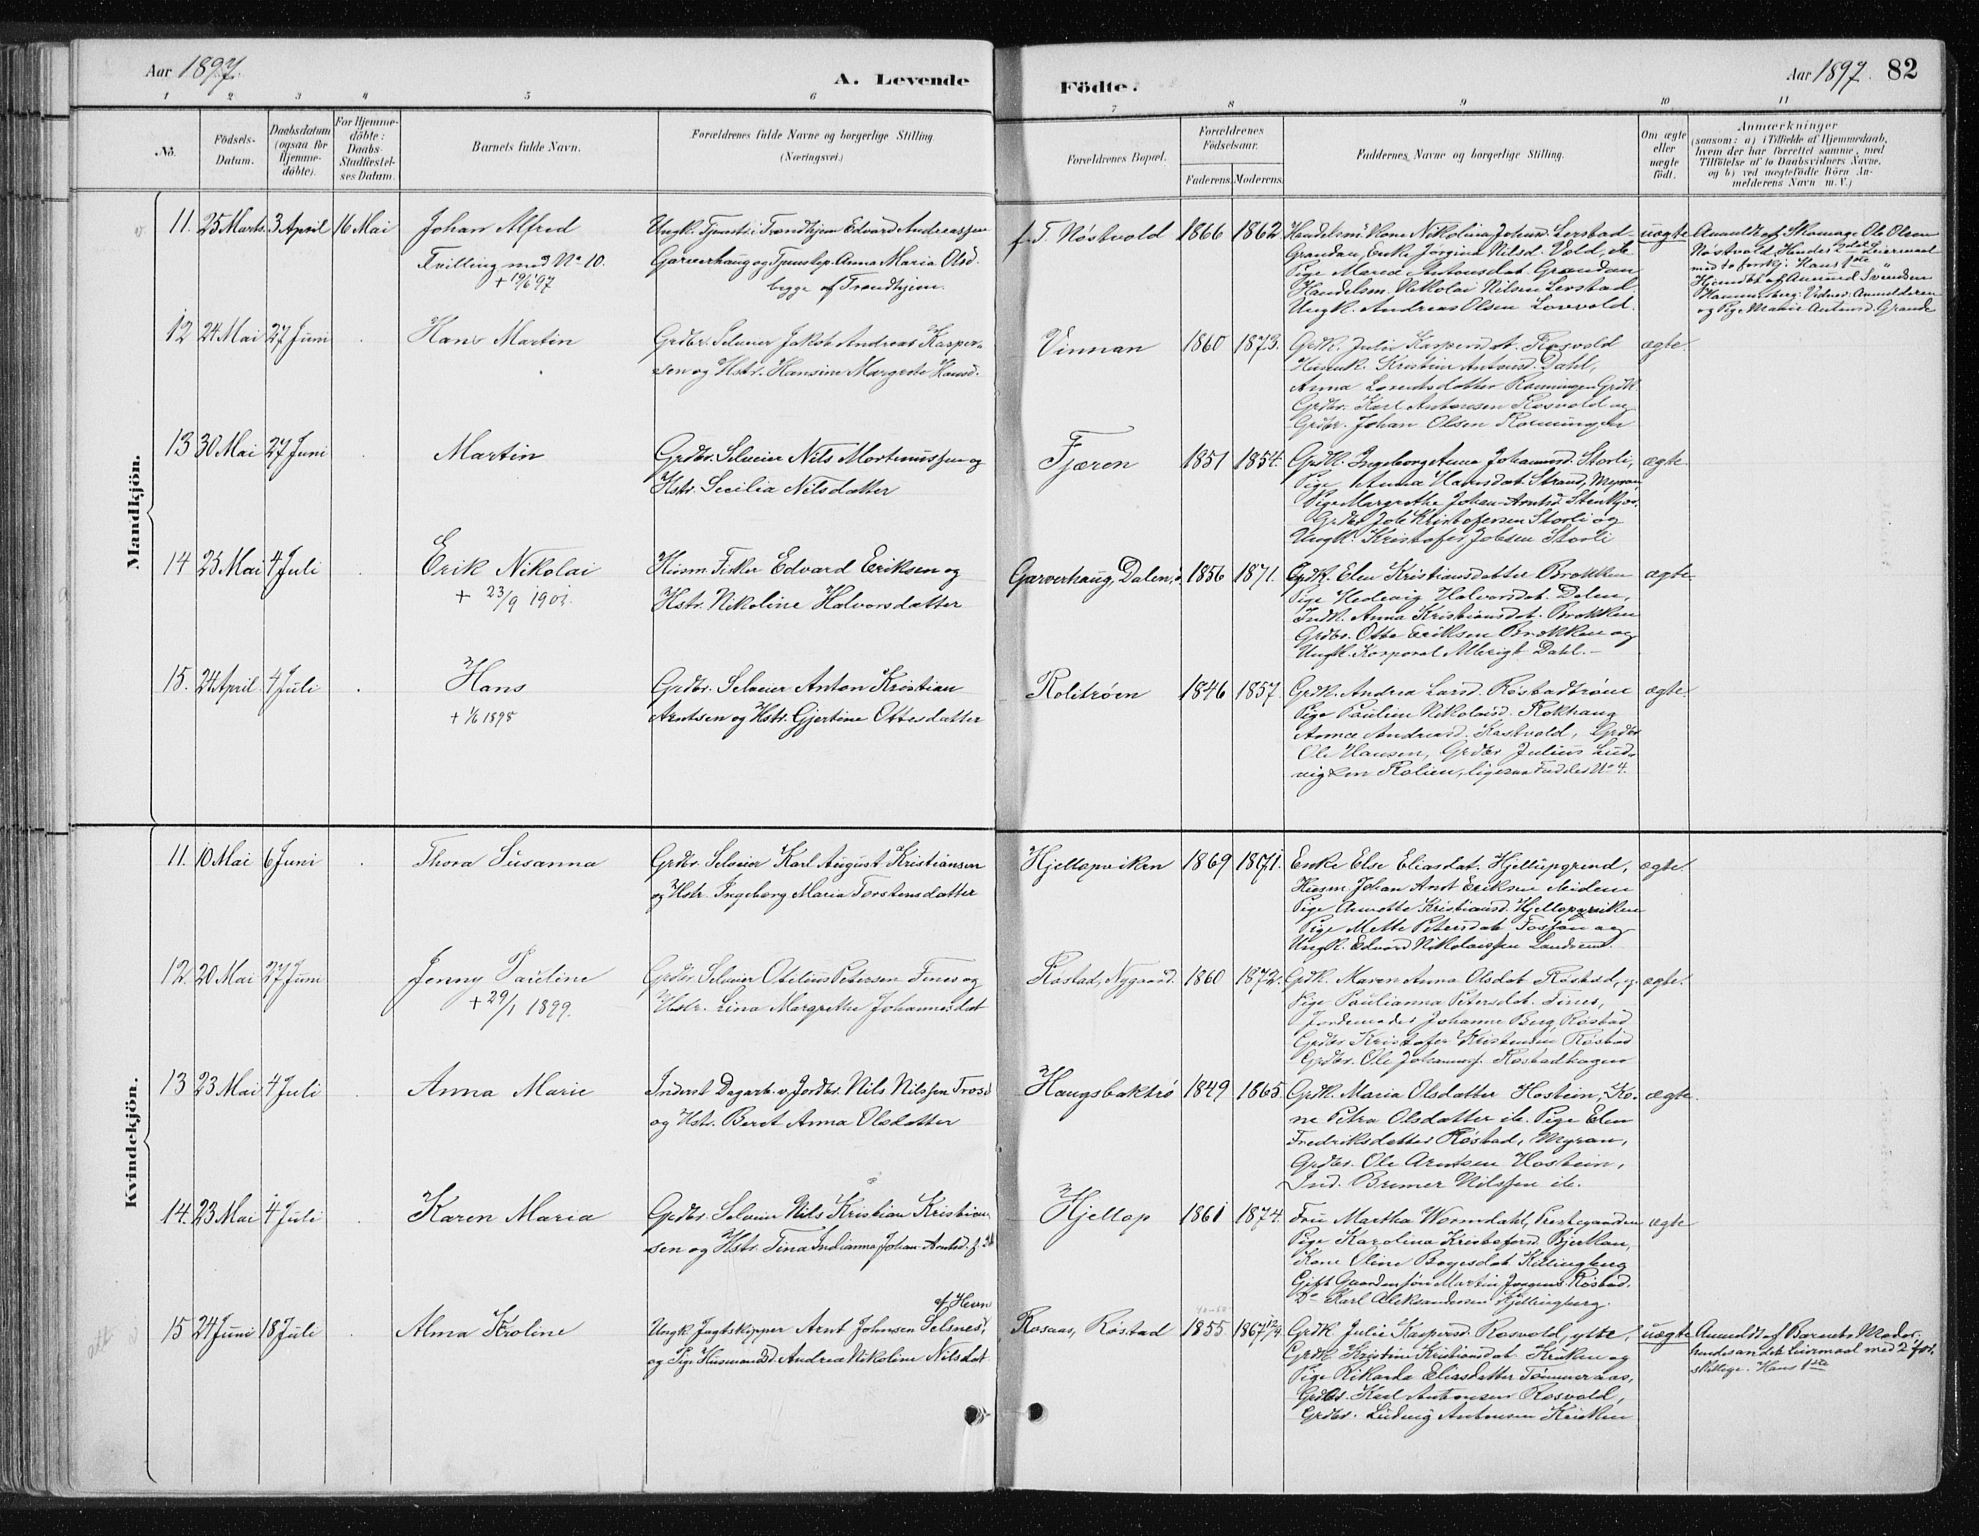 Aar 1897.
A. Levende
Födte.
Aar 1897. 82
1 2 3 4 5 6 7 8 9 10 11
No.
Födsels-Datum.
Daabsdatum (ogsaa for Hjemme-döbte).
For Hjemme-döbte: Daabs-Stadfæstel-ses Datum.
Barnets fulde Navn.
Forældrenes fulde Navne og borgerlige Stilling (Næringsvei.)
Forældrenes Bopæl.
Forældrenes Födselsaar.
Faderens. Moderens.
Faddernes Navne og borgerlige Stilling.
Om ægte eller uægte födt.
Anmærkninger
(saasom: a) i Tilfælde af Hjemmedaab, hvem der har forrettet samme, med Tilföielse af to Daabsvidners Navne, og b) ved uægtefödte Börn An-melderens Navn m. V.)
Mandkjön.
11. 25 Marts. 3 April 16 Mai
Johan Alfred
Tvilling med No 10.
+ 19/6 97
Ungk. Tjenstk. i Trondhjem Edvard Andreassen
Garverhaug og Tjenstep. Anna Maria Olsd.
begge af Trondhjem.
f. T. Nöstvold 1866 1862
Handelsm. Kone Nikolina Johnsd. Lerstad-
Grandan, Enke Jörgina Nilsd. Vold, ib
Pige Maria Antonsdat. Grandan
Handelsm. Nikolai Nilsen Lerstad
Ungk. Andreas Olsen Lervold.
uægte
Anmeldt af Skomager Ole Olsen
Nöstvold. Hendes 2det Leiermaal
med to forskj. Hans 1ste
Hjemdöbt af Amund Svendsen
Hammersberg. Vidner: Anmelderen
og Pige Marie Antonsd. Grande
12 24 Mai 27 Juni
Hans Martin
Grdbr. Selveier Jakob Andreas Kasper-
sen og Hstr. Hansine Margrete Hansd.
Vinnan 1860 1873.
Grdk. Julie Kaspersdat. Rosvold
Husmk. Kristine Antonsd. Dahl,
Anna Lorentsdatter Rönningen Grdk.
Grdbr. Karl Antonsen Rosvold og
Grdbr. Johan Olsen Rönningen
ægte.
13 30 Mai 27 Juni
Martin
Grdbr. Selveier Nils Mortinussen og
Hstr. Secilia Nilsdatter
Fjæren 1851 1854.
Grdk. Ingeborg Anna Johannesd. Storli,
Pige Anna Hansdat. Strand, Myran,
Pige Margrethe Johan-Arntsd. Stenkjær
Grdbr. Job Kristofersen Storli og
Ungk. Kristofer Jobsen Storli
ægte
14 23 Mai 4 Juli
Erik Nikolai
+ 23/9 1901.
Husm. Fisker Edvard Eriksen og
Hstr. Nikoline Halvorsdatter
Garverhaug, Dalen, 1856 1871.
Grdk. Elen Kristiansdatter Brokken
Pige Hedevig Halvorsdat. Dalen,
Indk. Anna Kristiansdat. Brokken
Grdbr. Otte Eriksen Brokken og
Ungk. Korporal Albrigt Dahl.
ægte
15. 24 April 4 Juli
Hans
+ 1/6 1898
Grdbr. Selveier Anton Kristian
Arntsen og Hstr. Gjertine Ottesdatter
Rolitröen 1846 1857.
Grdk. Andrea Larsd. Röstadtröen
Pige Pauline Nikolaisd. Rökhaug
Anna Andreasd. Rostvold, Grdbr
Ole Hansen, Grdbr Julius Lud-
vigsen Rolien, ligesaa Fadder No 4.
ægte.
Kvindekjön.
11. 10 Mai 6 Juni
Thora Susanna
Grdbr. Selveier Karl August Kristiansen
og Hstr. Ingeborg Maria Torstensdatter
Hjellopviken 1869 1871.
Enke Else Eliasdat. Hjellupgrind,
Husm. Johan Arnt Eriksen Neidene
Pige Annette Kristiansd. Hjellopsviken
Pige Mette Petersdat. Fosfan og
Ungk. Edvard Nikolaissen Landrem.
ægte.
12. 20 Mai 27 Juni
Jenny Pauline
+ 29/1 1899.
Grdbr. Selveier Obelius Petersen Fines og
Hstr. Lina Margrethe Johannesdat
Röstad, Nygaard. 1860 1872.
Grdk. Maren Anna Olsdat. Röstad,
Pige Paulianna Petersdat. Fines,
Jordemoder Johanne Berg, Röstad
Grdbr Kristofer Kristensen Röstad
Grdbr. Ole Johannesf. Röstadhagen
ægte.
13 23 Mai 4 Juli
Anna Marie
Inderst Dagarb. v. Jordbr. Nils Nilssen Troset
og Hstr. Beret Anna Olsdatter
Haugsbaktrö 1849 1865.
Grdk. Maria Olsdatter Hostein, Ko-
ne Petra Olsdatter ib. Pige Elen
Fredriksdatter Röstad, Myran,
Grdbr. Ole Arntsen Hostein,
Ind. Bremer Nilssen ib.
ægte.
14. 23 Mai 4 Juli
Karen Maria
Grdbr. Selveier Nils Kristian Kristian-
sen og Hstr. Tina Indianna Johan-Arntsd.
Hjellop 1861 1874.
Frue Martha Wormdahl, Prestegaarden
Pige Karolina Kristofersd. Bjerkan,
Kone Oline Boyesdat. Killingberg
Gift Gaardmsön Martin Jörgens. Röstad.
Do Karl Aleksandersen Hjellingberg.
ægte
15 24 Juni 18 Juli
Alma Kroline
af Hevn
Ungk Jagtskipper Arnt Johnsen Selsnes,
og Pige Husmandsd. Andrea Nikoline Nilsdat
Rosaas, Röstad 1855 1867 12/4
Grdk Julie Kaspersd. Rosvold, ytre,
Grdk Kristine Kristiansdat. Kruken og
Pige Rikarda Eliasdatter Tömmeraas,
Grdbr. Karl Antonsen Rosvold,
Grdbr. Ludvig Antonsen Kruken
uægte
Anmeldt af Barnets Moder.
hendes andet Leiermaal med 2 for-
skjellige. Hans 1ste